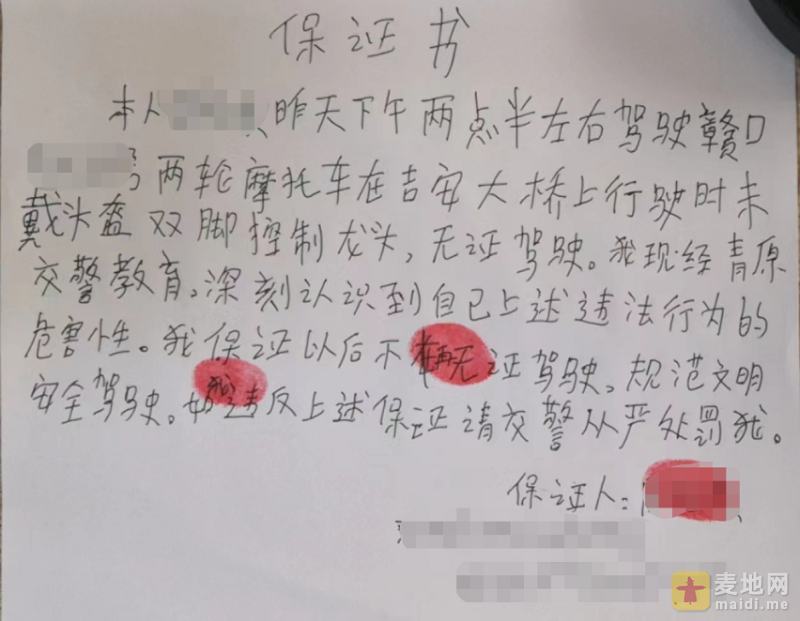 保证书
本人 昨天下午两点半左右驾驶赣D
两轮摩托车在吉安大桥上行驶时未
戴头盔双脚控制龙头，无证驾驶。我现经青原
交警教育。深刻认识到自已上述违法行为的
危害性。我保证以后不再无证驾驶。规范文明
安全驾驶。如我违反上述保证请交警从严处罚我。
保证人：
麦地网
maidi.me